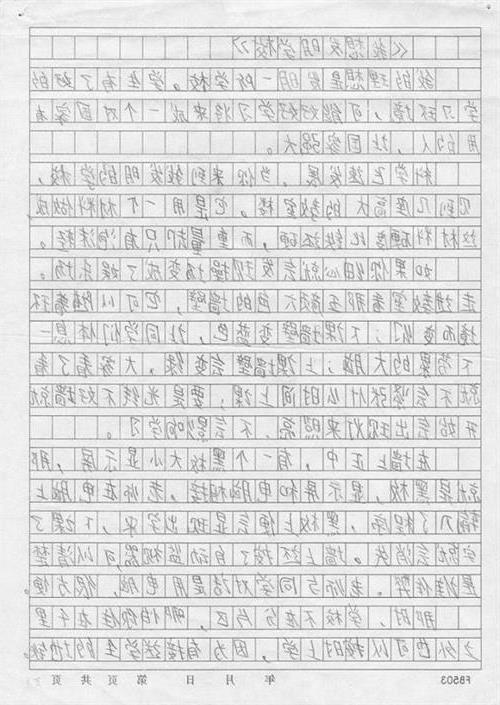 《我想发明学校》
我的理想是发明一所学校。学生有了好的
学习环境,可以好好学习将来成一个对国家有
用的人,让国家强大。
科学飞速发展,当你来到我发明的学校,
见到几座高大的教室楼。它是用一个材料做成,
这材料硬度比铁还硬,而重量却只有泡沫轻。
如果你细心就会发现操场变成了娱乐场。
走进教室看那五颜六色的墙壁,它可以随着环
境而变化;下课墙壁变蓝色,让同学们休息一
下劳累的大脑;上课墙壁会变绿,大家看了看
就不会紧张什么时间上课;要是光线不好墙就
开始会出现灯来照亮,不会影响学习。
在墙上正中,有一个黑板大小显示屏,那
就是黑板,显示屏和电脑相接,老师在电脑上
输入了程序,黑板上便会显现出字来,下课了
字就会消失。墙上还接了自动监视器,可以清楚
是谁作弊。老师与同学对话是用电脑,很方便。
那时,学校不在分片区,哪怕你住在千里
之外也可以按时上学,因为有接送学生的地铁
年 月 日 第 页 共 页 FB503